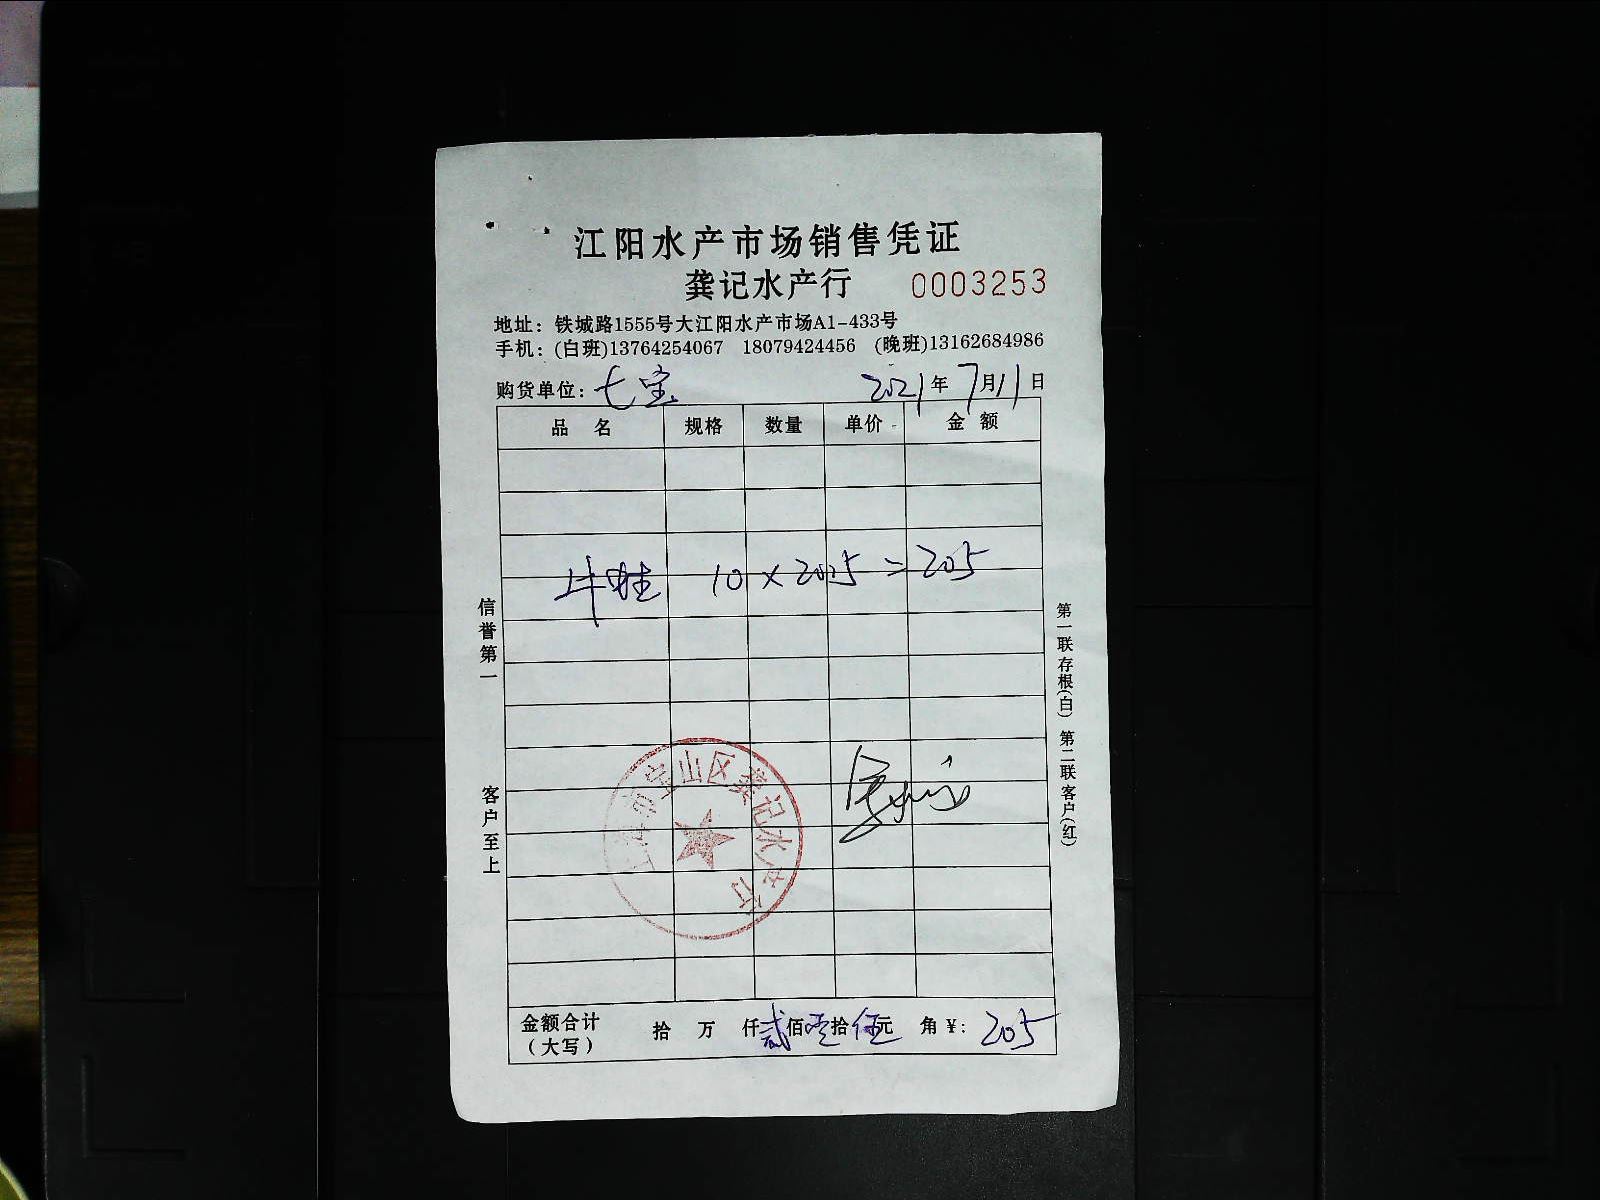 江阳水产市场销售凭证
龚记水产行 0003253
地址：铁城路1555号大江阳水产市场A1-433号
手机：(白班)13764254067 18079424456 (晚班)13162684986
购货单位：七宝 2021年7月11日
品名 规格 数量 单价 金额
牛蛙 10×20.5=205
信誉第一 客户至上
第一联存根(白) 第二联客户(红)
上海市宝山区龚记水产行
金额合计 拾 万 仟贰佰零拾伍元 角￥：205
(大写)